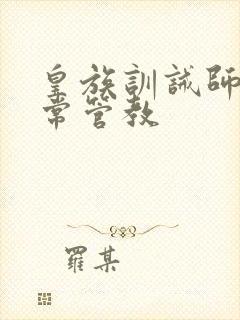 皇族訓誡師
常管教
羅某